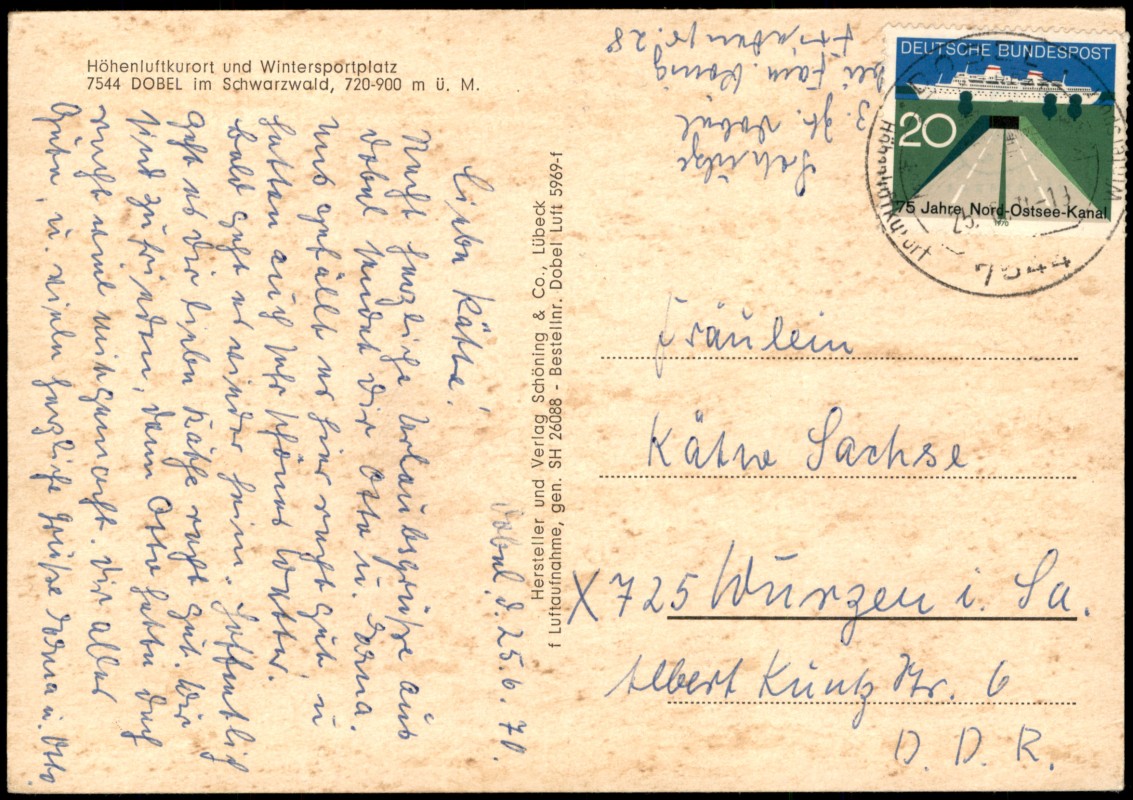 Höhenluftkurort und Wintersportplatz
7544 DOBEL im Schwarzwald, 720-900 m ü. M.
Dobel, d. 25.6.70.
Liebe Käthe!
Recht herzliche Urlaubsgrüße aus
Dobel sendet Dir Otto u.
Uns gefällt es hier recht gut u
hatten auch sehr schönes Wetter.
Bald geht es wieder heim. Hoffentlich
geht es Dir liebe Käthe recht gut. Wir
sind zufrieden, denn Otto hatte doch
recht viel mitgemacht. Dir alles
Gute, u. viele herzliche Grüße u. Otto
Hersteller und Verlag Schöning & Co., Lübeck
f Luftaufnahme, gen. SH 26088 - Bestellnr. Dobel Luft 5969-f
z. Zt. Dobel
bei Fam. König
28
DEUTSCHE BUNDESPOST
20
75 Jahre Nord-Ostsee-Kanal
1970
Höhenluftkurort
7544
Fräulein
Käthe Sachse
X 725 Wurzen i. Sa.
Albert Kuntz Str. 6
D. D. R.